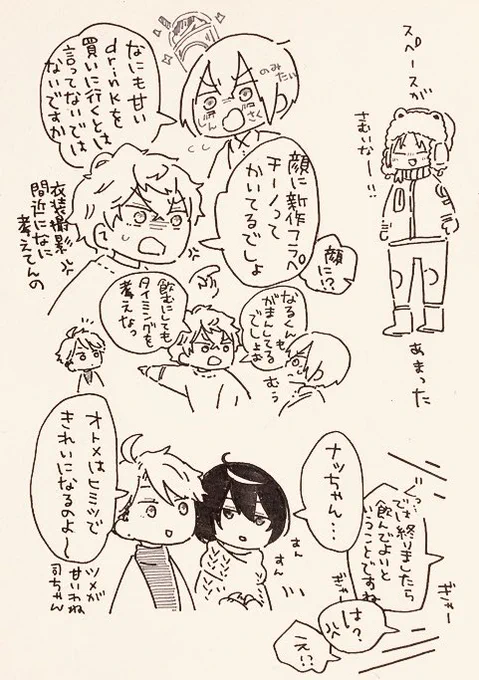 スペースが
さむいなー!!
あまった
のみたい
しん
さく
なにも甘い
drinkを
買いに行くとは
言ってないでは
ないですか
顔に新作フラペ
チーノって
かいてるでしょ
顔に!?
衣装撮影
間近になに
考えてんの
なるくんも
がまんしてる
でしょお
むぅ
飲むにしても
タイミングを
考えなっ
では終りましたら
飲んでよいと
いうことですね
ぎゃー
ぎゃー
は?
え!?
ナッちゃん…
すん
すん
オトメはヒミツで
きれいになるのよ〜
ツメが
甘いわね
司ちゃん